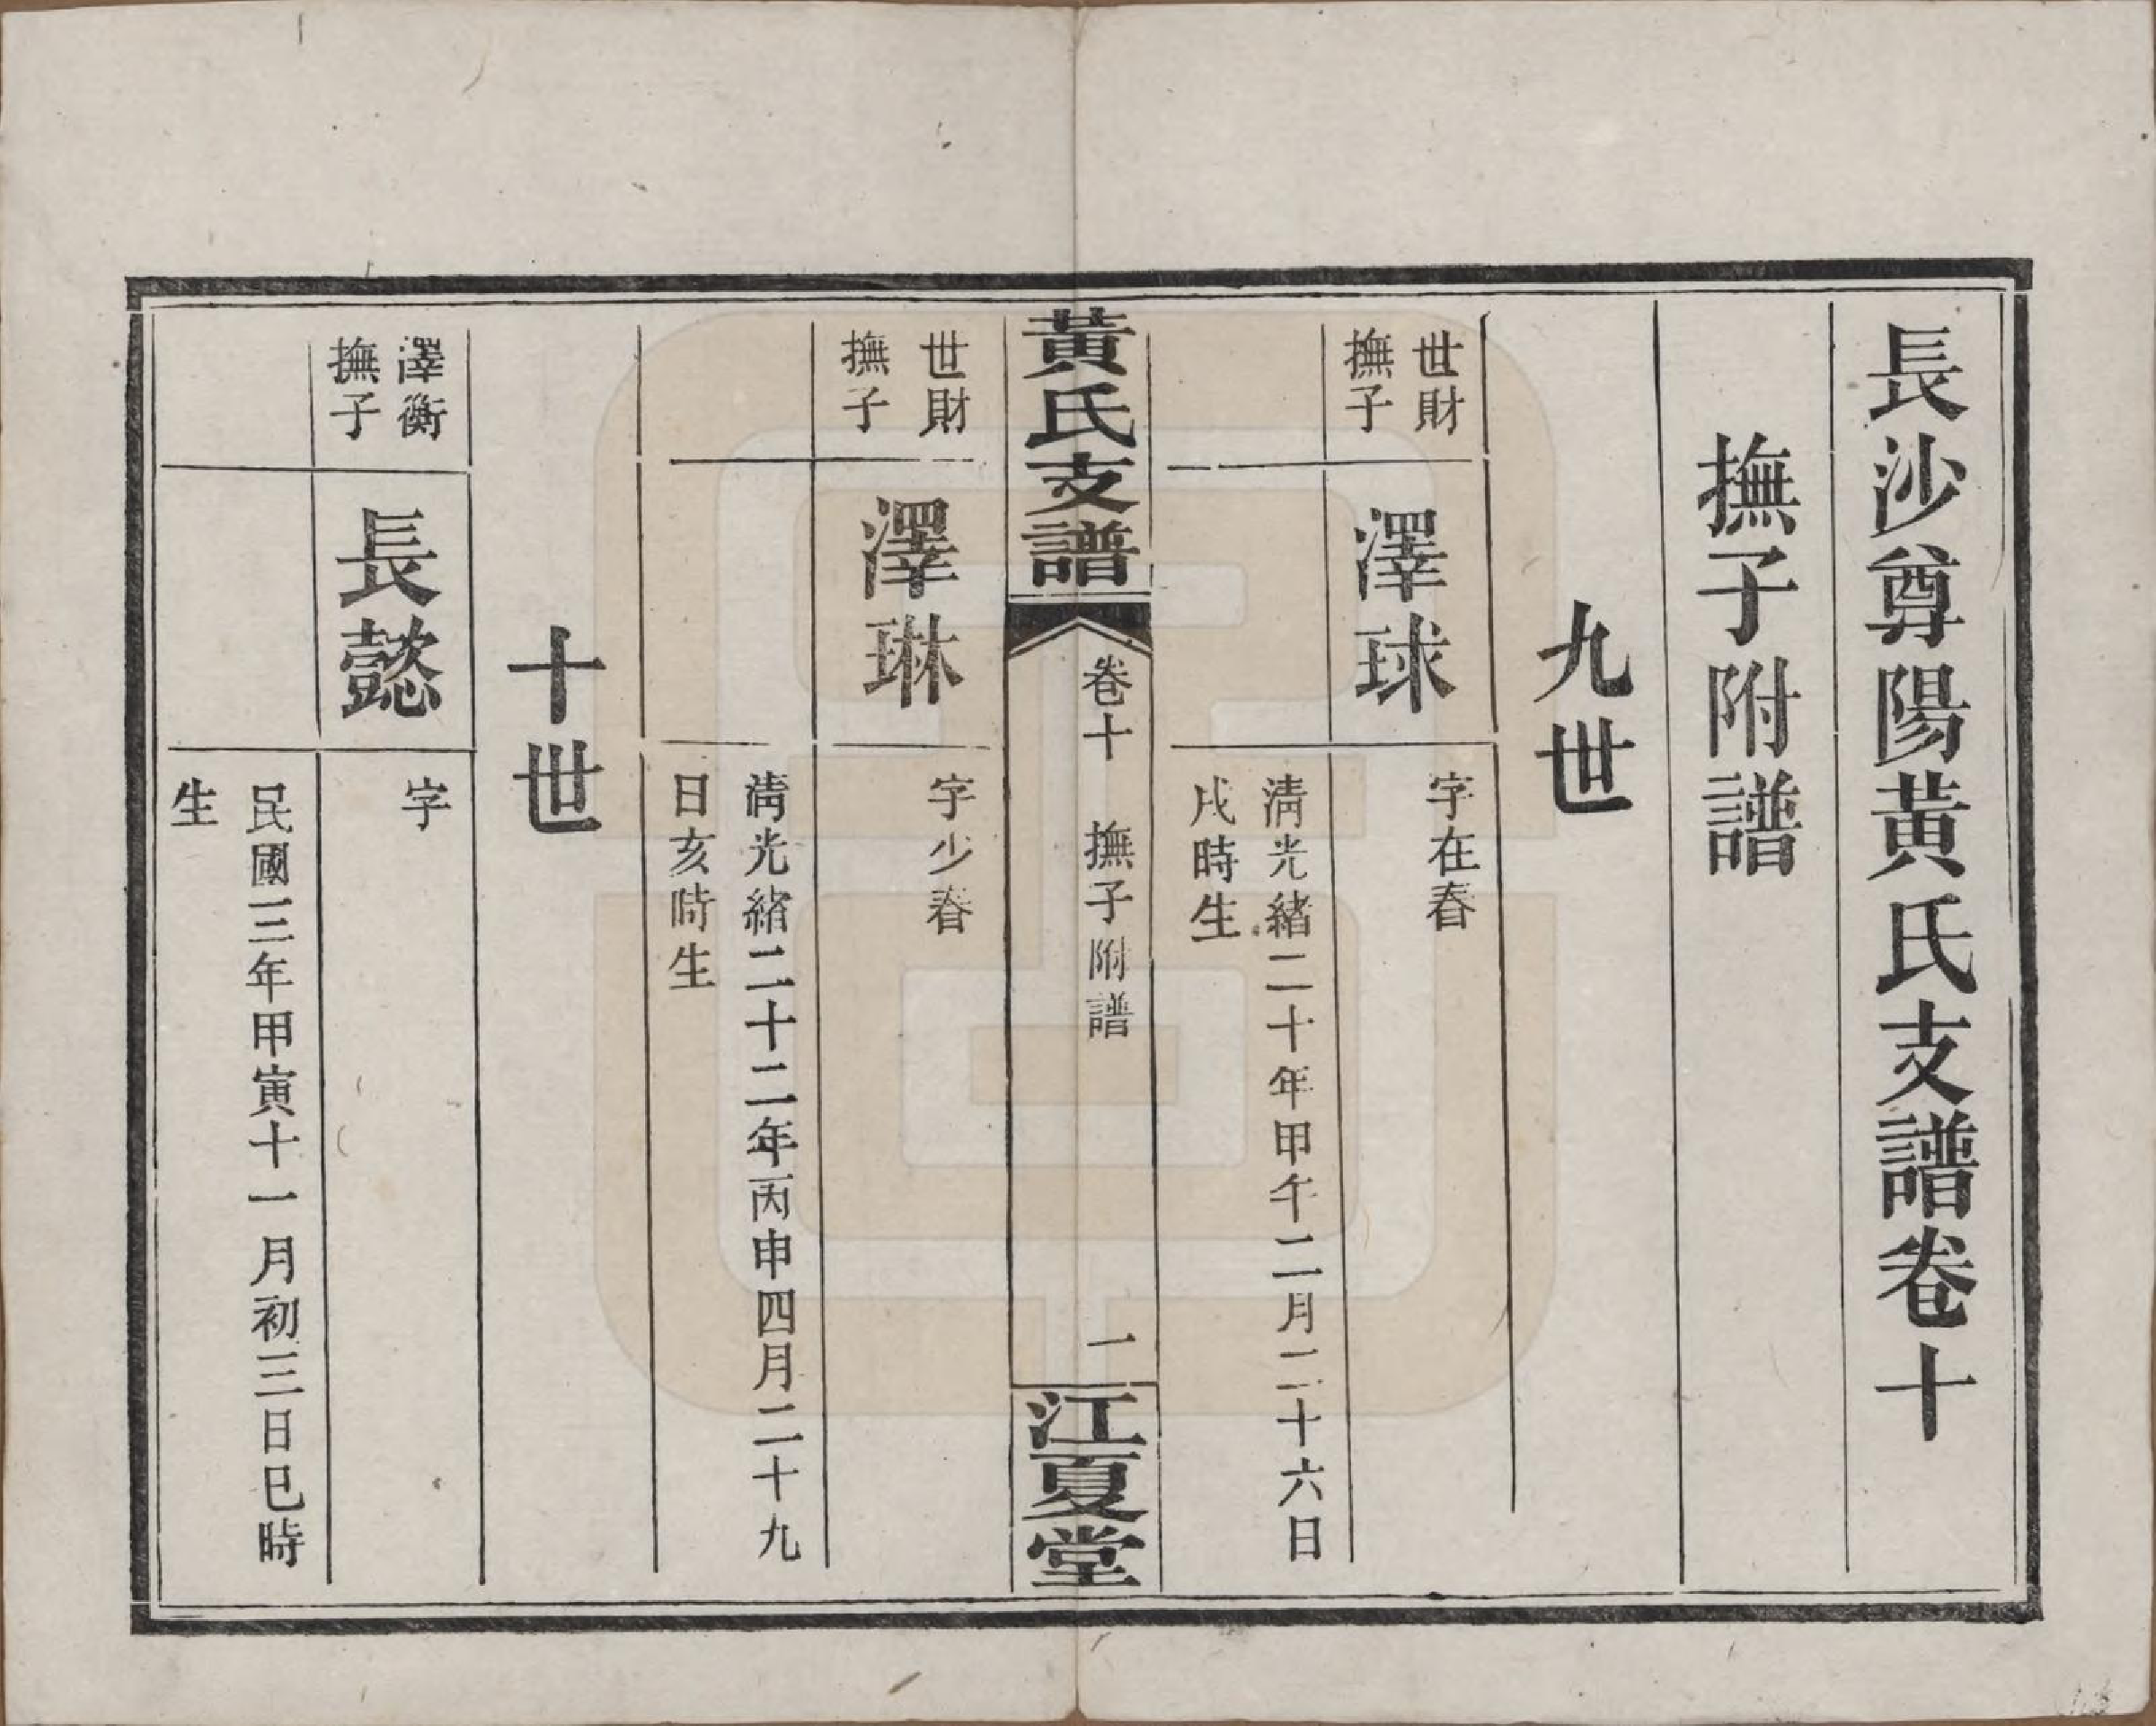 長沙尊陽黃氏支譜卷十
撫子附譜
九世
世財
撫子
澤球
字在春
淸光緒二十年甲午二月二十六日
戌時生
黃氏支譜
卷十 撫子附譜 一
江夏堂
世財
撫子
澤琳
字少春
淸光緒二十二年丙申四月二十九
日亥時生
十世
澤衡
撫子
長懿
字
民國三年甲寅十一月初三日巳時
生